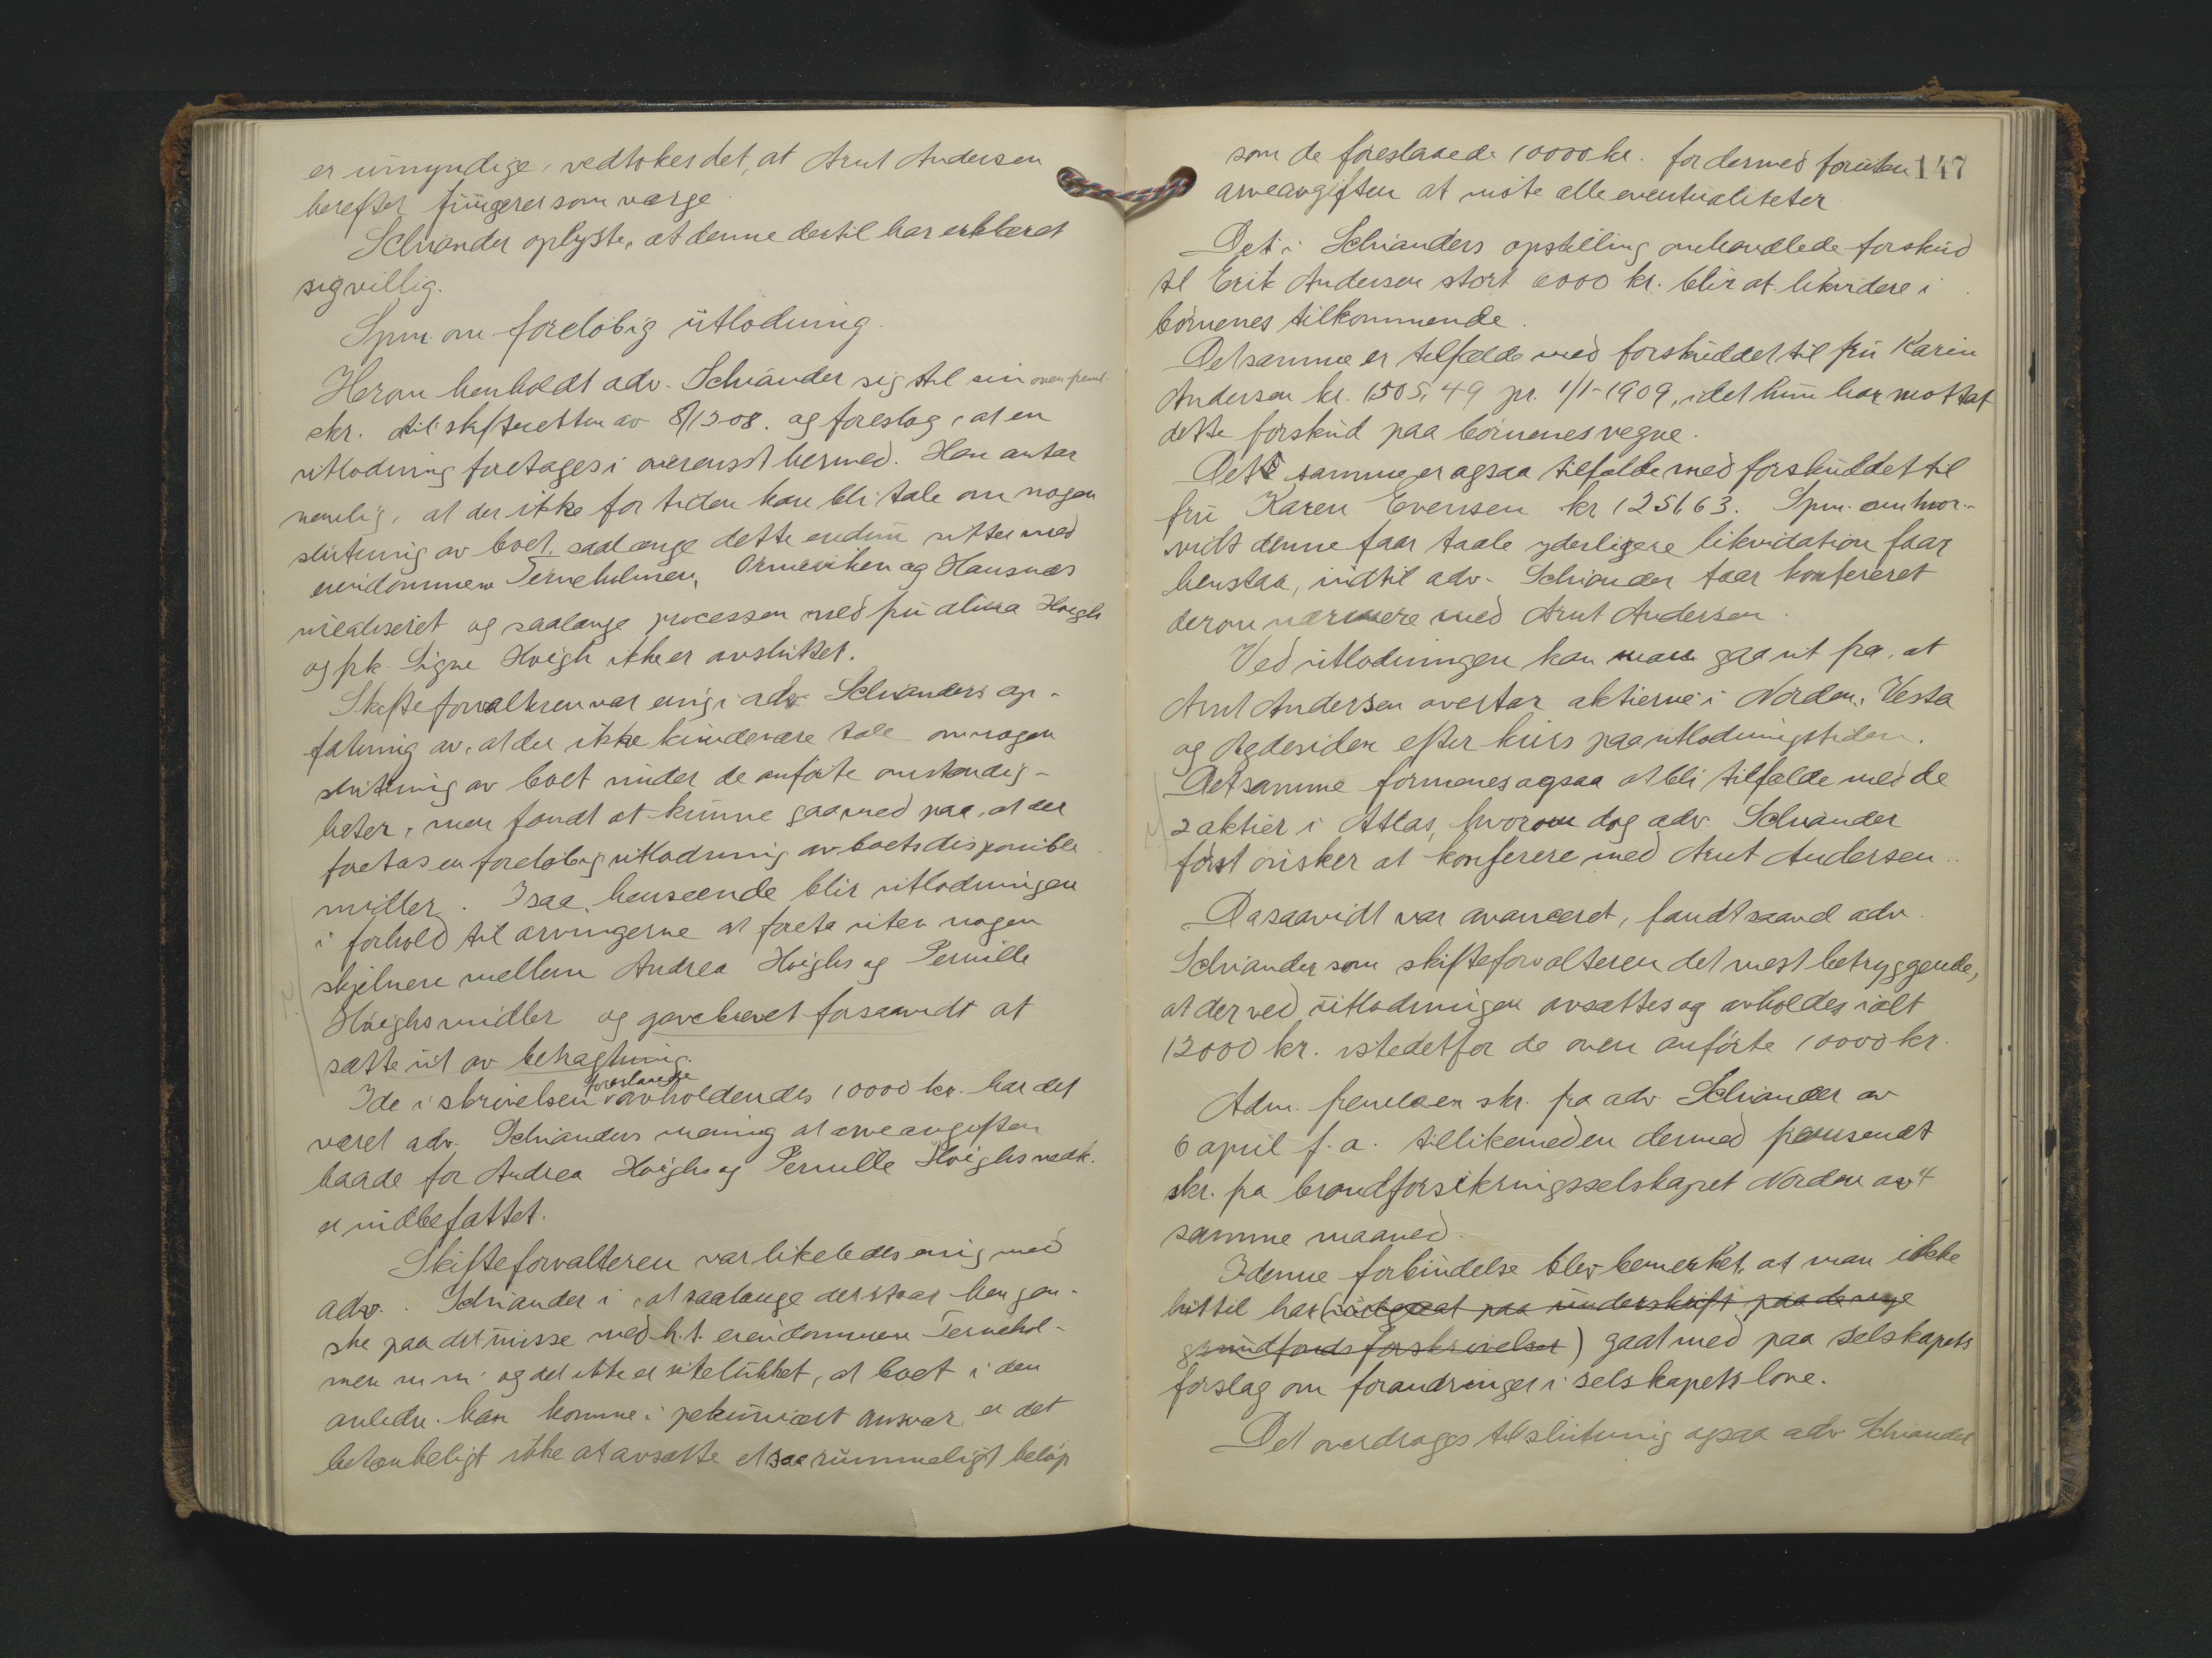 er umyndige, vedtokes det, at Arnt Andersen
herefter fungerer som værge.
Schiander oplyste, at denne dertil har erklæret
sig villig.
Spm. om foreløbig utlodning.
Herom henholdt adv. Schiander sig til sin oven freml.
skr. til skifteretten av 8/12 08. og foreslog, at en
utlodning foretages i overensst hermed. Han antar
nemlig, at der ikke for tiden kan bli tale om nogen
slutning av boet, saalænge dette endnu sitter med
eiendommene Terneholmen, Ormeviken og Hausnæs
urealiseret og saalænge processen med fru Alma Høigh
og frk. Signe Høigh ikke er avsluttet.
Skifteforvalteren var enig i adv. Schianders op-
fatning av, at der ikke kunde være tale om nogen
slutning av boet under de anførte omstændig-
heter, men fandt at kunne gaa med paa, at der
foretas en foreløbig utlodning av boets disponible
midler. I saa henseende blir utlodningen
i forhold til arvingerne at foreta uten nogen
skjelnen mellem Andrea Høighs og Pernille
Høighs midler og gavebrevet forsaavidt at
sætte ut av betragtning.
I de i skrivelsen foreslaaede avholdendes 10000 kr. har det
været adv. Schianders mening at arveavgiften
baade for Andrea Høighs og Pernille Høighs vedk.
er indbefattet.
Skifteforvalteren var likeledes enig med
adv. Schiander i, at saalænge der staar hen gan-
ske paa det uvisse med h.t. eiendommen Ternehol-
men m m og det ikke er utelukket, at boet i den
anledn. kan komme i pekuniært ansvar, er det
betænkeligt ikke at avsætte et saa rummeligt beløp
147
som de foreslaaede 10000 kr. for dermed foruten
arveavgiften at møte alle eventualiteter
Det i Schianders opstilling omhandlede forskud
til Erik Andersen stort 6000 kr. blir at likvidere i
børnenes tilkommende.
Det samme er tilfælde med forskuddet til fru Karin
Andersen kr. 1505,49 pr. 1/1-1909, idet hun har mottat
dette forskud paa børnenes vegne.
Det samme er ogsaa tilfælde med forskuddet til
fru Karen Evensen kr 1251 63. Spm. om hvor-
vidt denne faar taale yderligere likvidation faar
henstaa, indtil adv. Schiander faar konfereret
derom nærmere med Arnt Andersen.
Ved utlodningen kan man gaa ut fra, at
Arnt Andersen overtar aktierne i Norden, Vesta
og Ægdesiden efter kurs paa utlodningstiden.
Det samme formenes ogsaa at bli tilfælde med de
2 aktier i Atlas, hvorom dog adv. Schiander
først ønsker at konferere med Arnt Andersen.
Da saavidt var avanceret, fandt saavel adv.
Schiander som skifteforvalteren det mest betryggende,
at der ved utlodningen avsættes og avholdes ialt
12000 kr. istedetfor de oven anførte 10000 kr.
Adm. fremla en skr. fra adv. Schiander av
6 april f.a. tillikemed en dermed fremsendt
skr. fra brandforsikringsselskapet Norden av 4
samme maaned.
I denne forbindelse blev bemerket, at man ikke
hittil har (indgaat paa underskrift paa de nye
grundfondsforskrivelser) gaat med paa selskapets
forslag om forandringer i selskapets love.
Det overdrages til slutning ogsaa adv Schiander